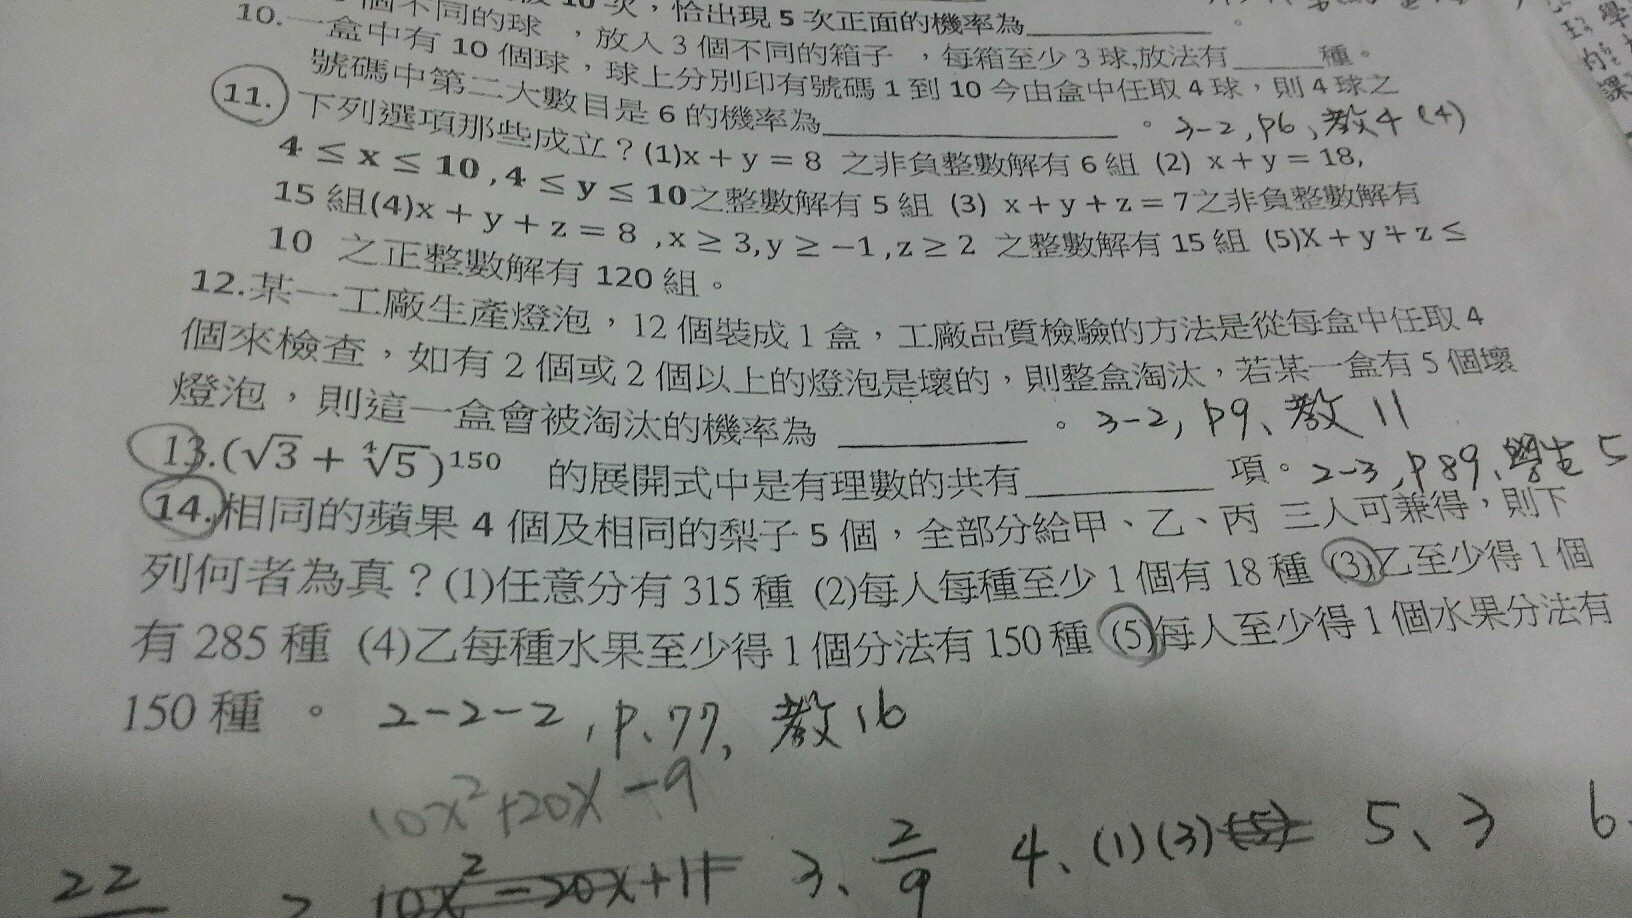 10 次，恰出現 5 次正面的機率為
個不同的球 ，放入 3 個不同的箱子 ，每箱至少 3 球,放法有 種。
10.一盒中有 10 個球，球上分別印有號碼 1 到 10 今由盒中任取 4 球，則 4 球之
號碼中第二大數目是 6 的機率為 。 3-2, P6、教4 (4)
11. 下列選項那些成立？(1)x + y = 8 之非負整數解有 6 組 (2) x + y = 18,
4 ≤ x ≤ 10 , 4 ≤ y ≤ 10之整數解有 5 組 (3) x + y + z = 7之非負整數解有
15 組(4)x + y + z = 8 , x ≥ 3, y ≥ −1 , z ≥ 2 之整數解有 15 組 (5)X + y + z ≤
10 之正整數解有 120 組。
12.某一工廠生產燈泡，12 個裝成 1 盒，工廠品質檢驗的方法是從每盒中任取 4
個來檢查，如有 2 個或 2 個以上的燈泡是壞的，則整盒淘汰，若某一盒有 5 個壞
燈泡，則這一盒會被淘汰的機率為 。 3-2, P9、教 11
13.(√3 + ∜5)¹⁵⁰ 的展開式中是有理數的共有 項。 2-3, P89、學生 5
14.相同的蘋果 4 個及相同的梨子 5 個，全部分給甲、乙、丙 三人可兼得，則下
列何者為真？(1)任意分有 315 種 (2)每人每種至少 1 個有 18 種 (3)乙至少得 1 個
有 285 種 (4)乙每種水果至少得 1 個分法有 150 種 (5)每人至少得 1 個水果分法有
150 種 。 2-2-2, P、77、教 16
10x²+20x-9
22 10x²-20x+11 3、2/9 4、(1)(3)(5) 5、3 6.